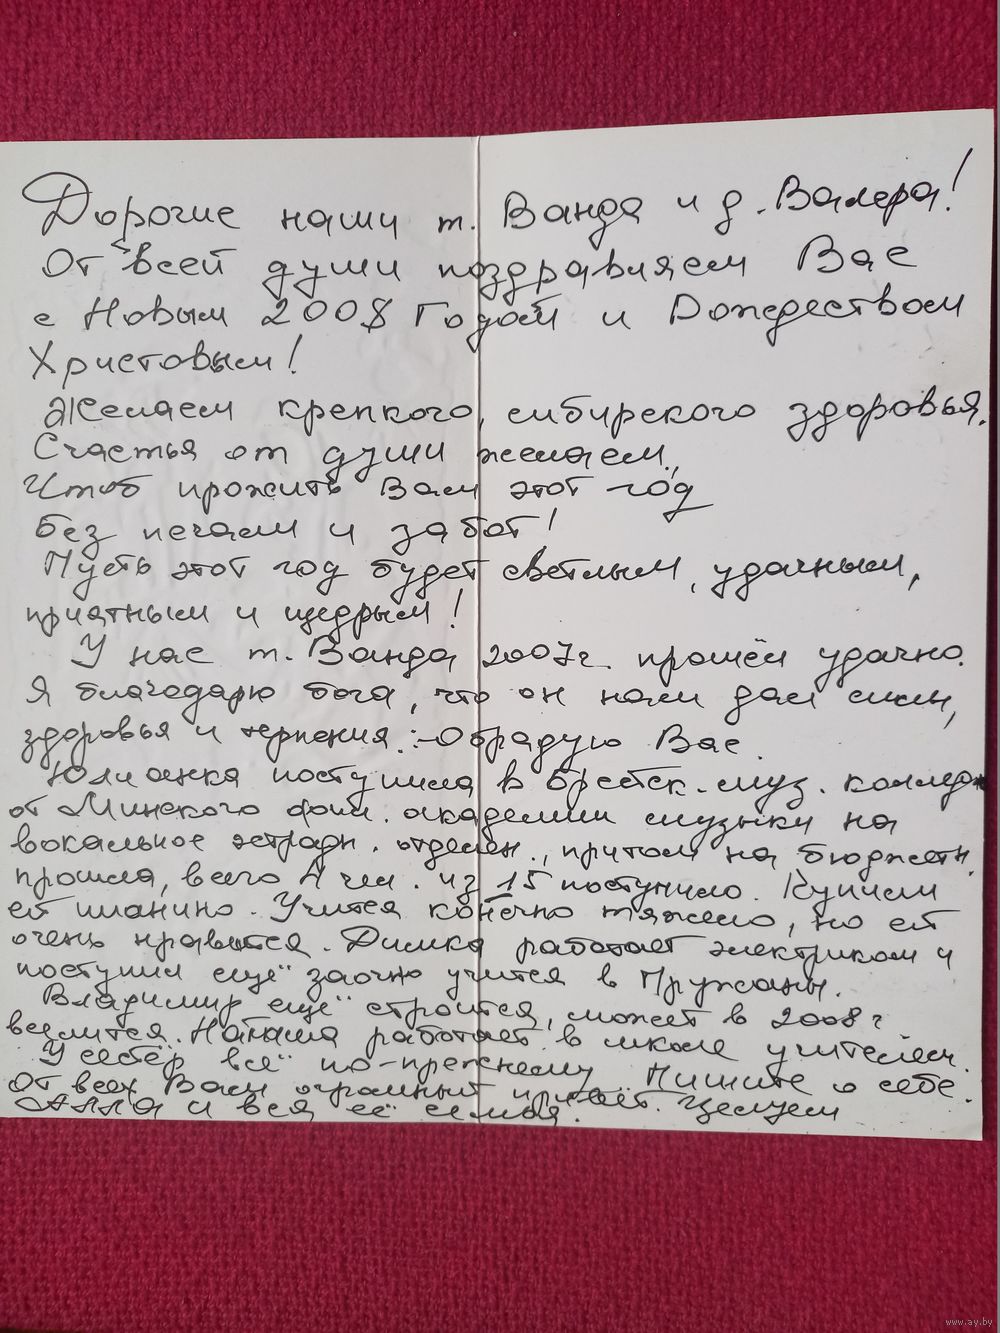 Дорогие наши т. Ванда и д. Валера!
От всей души поздравляем Вас
с Новым 2008 Годом и Рождеством
Христовым!
Желаем крепкого, сибирского здоровья.
Счастья от души желаем,
Чтоб прожить Вам этот год
без печали и забот!
Пусть этот год будет светлым, удачным,
приятным и щедрым!
У нас т. Ванда 2007г. прошёл удачно.
Я благодарю бога, что он нам дал силы,
здоровья и терпения. Обрадую Вас.
Юлианка поступила в Брестск. муз. коллед
от Минского фил. академии музыки на
вокальное эстрадн. отделен., притом на бюджетн.
прошла, всего 4 чел. из 15 поступило. Купили
ей пианино. Учится конечно тяжело, но ей
очень нравится. Димка работает электриком и
поступил ещё заочно учится в Пружаны.
Владимир ещё строится, может в 2008г
вселится. Наташа работает в школе учителем.
У сестёр всё по-прежнему. Пишите о себе.
От всех Вам огромный привет. Целуем
Алла и вся её семья.
www.ay.by